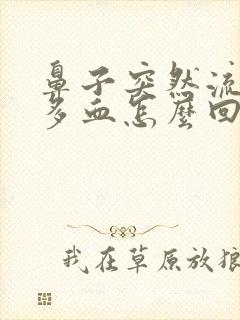 鼻子突然流
多血怎麼回
我在草原放狼